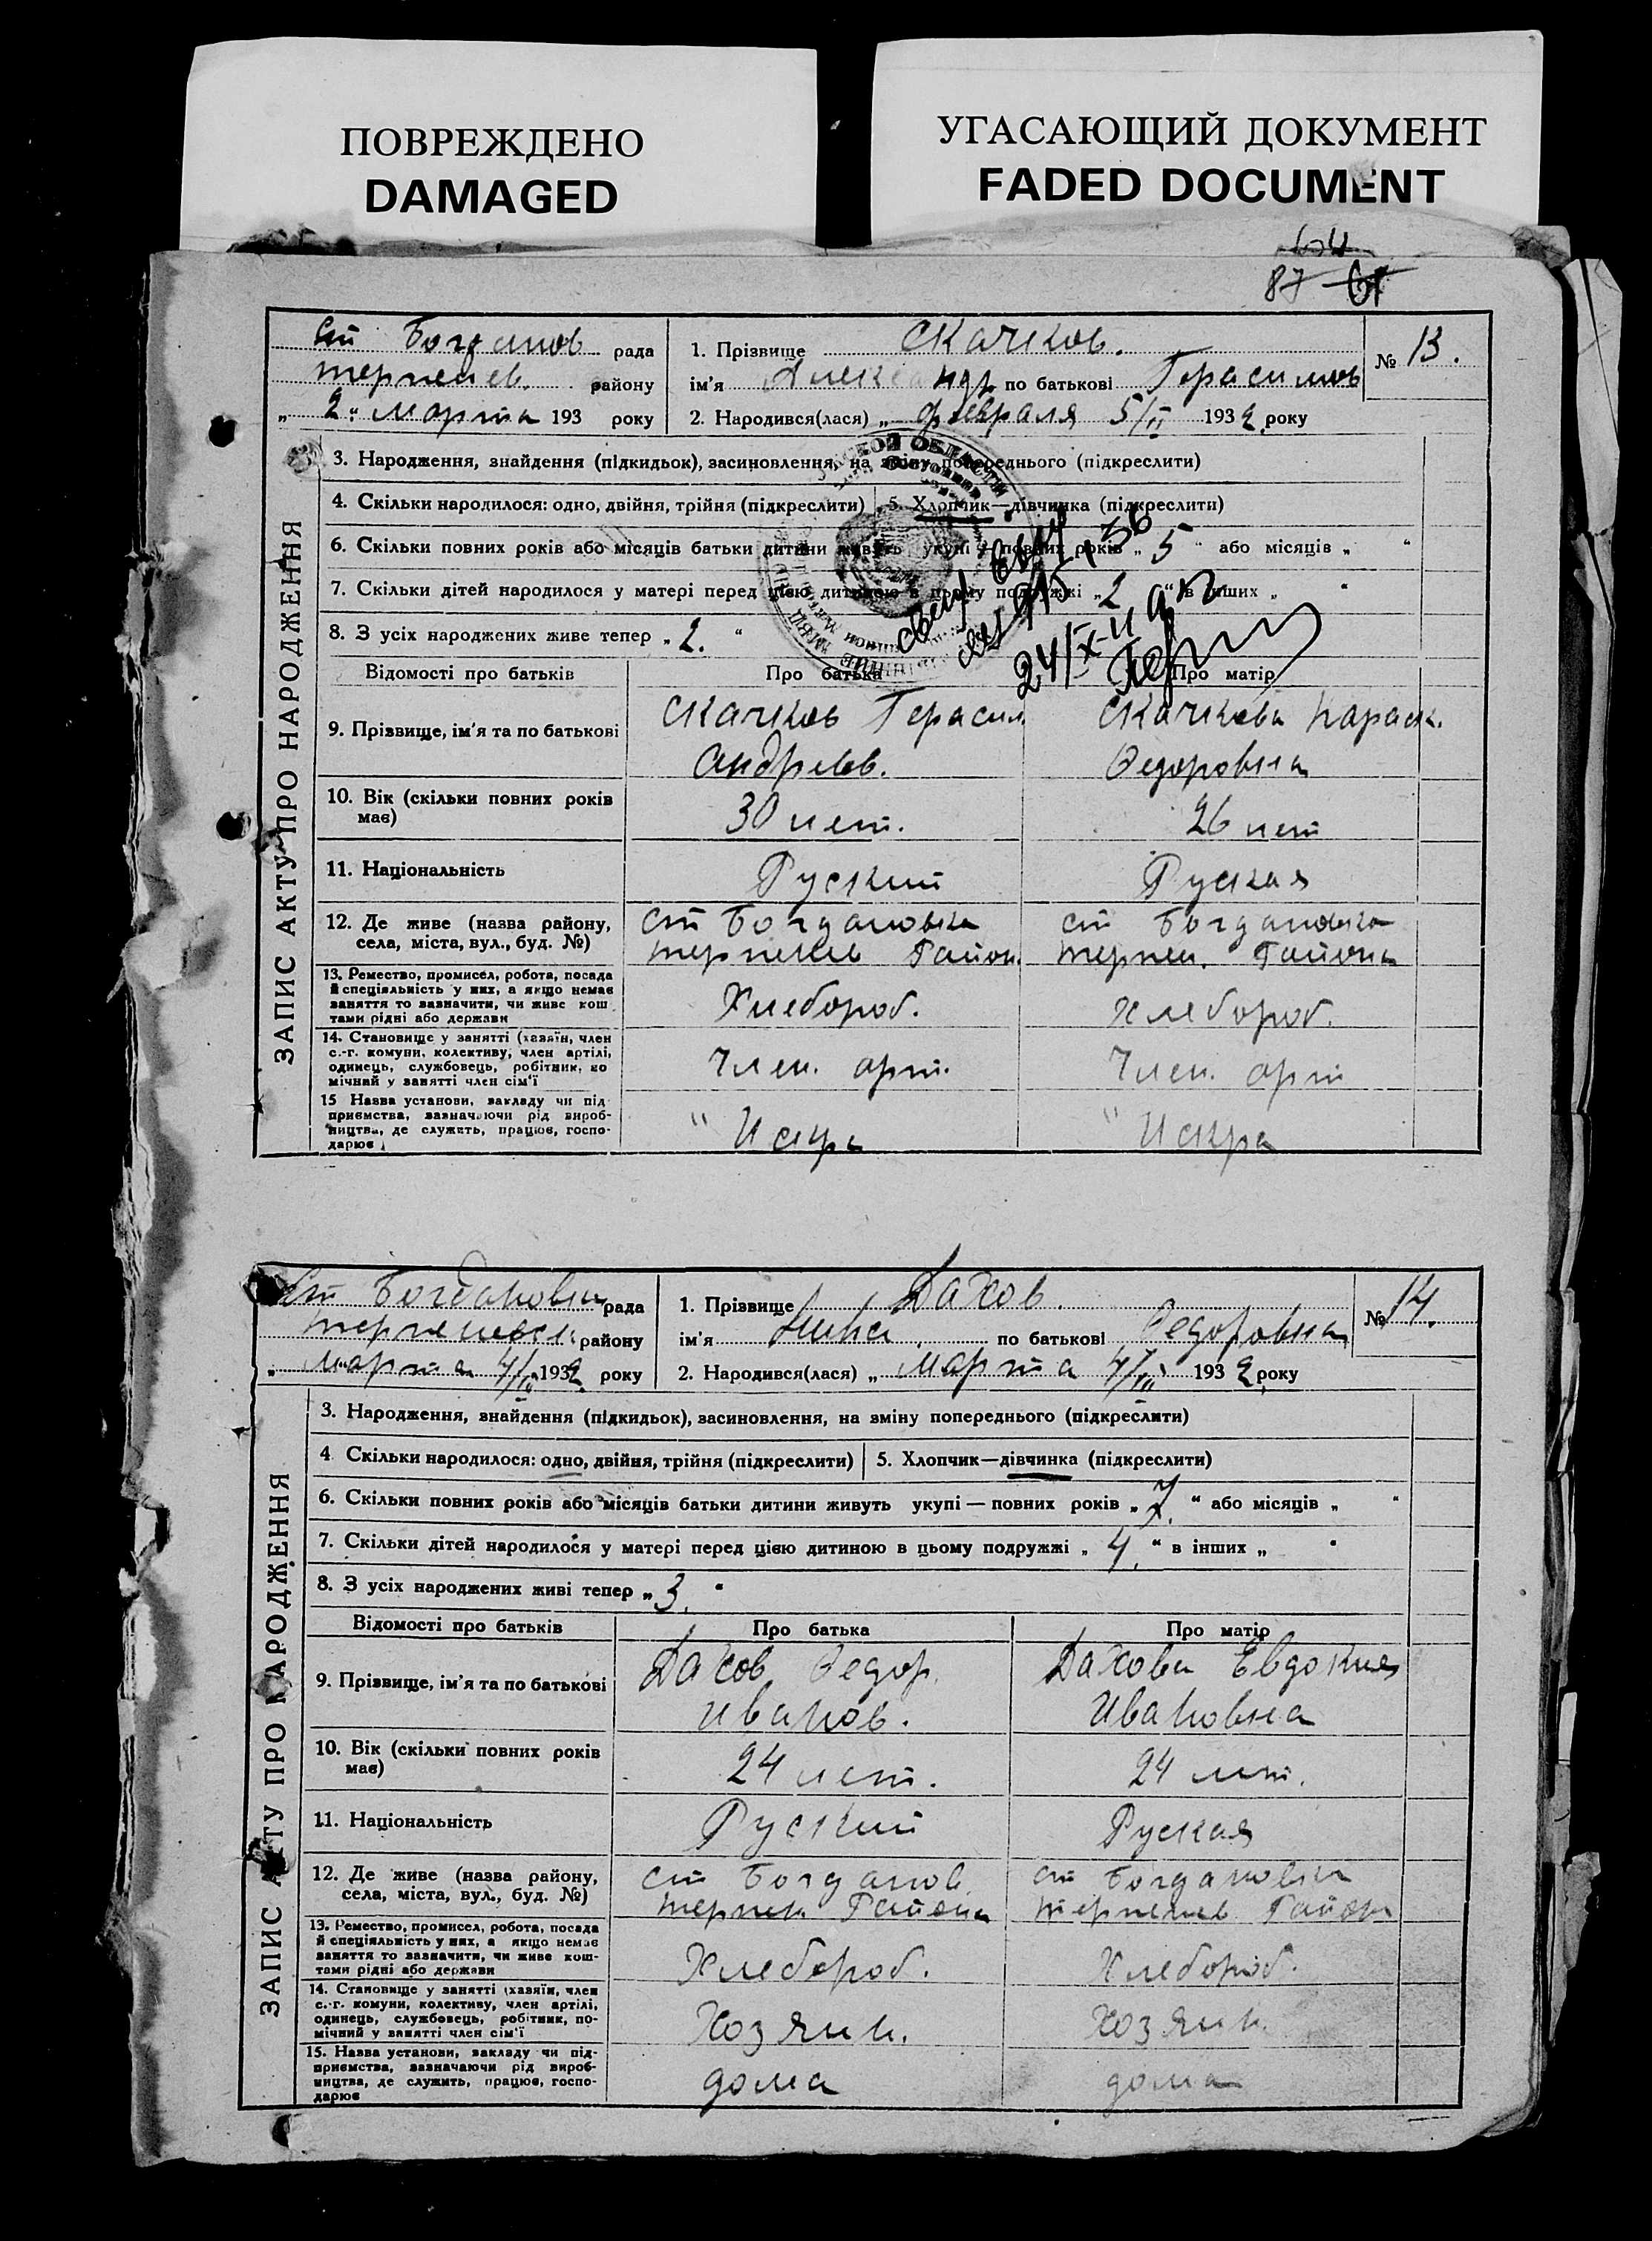 ПОВРЕЖДЕНО
DAMAGED
УГАСАЮЩИЙ ДОКУМЕНТ
FADED DOCUMENT
87
ЗАПИС АКТУ ПРО НАРОДЖЕННЯ
ст Богданов рада
терпенев. району
„ 2 " Марта 193 року
1. Прізвище Скачков.
ім'я Александр по батькові Герасимов
2. Народився(лася) „ февраля 5/II 1932 року
№ 13.
3. Народження, знайдення (підкидьок), засиновлення, на зміну попереднього (підкреслити)
4. Скільки народилося: одно, двійня, трійня (підкреслити) 5. Хлопчик—дівчинка (підкреслити)
6. Скільки повних років або місяців батьки дитини живуть укупі — повних років „ 5 " або місяців „ "
7. Скільки дітей народилося у матері перед цією дитиною в цьому подружжі „ 2 " в інших „ "
8. З усіх народжених живе тепер „ 2. "
24/X-
Відомості про батьків Про батька Про матір
9. Прізвище, ім'я та по батькові Скачков Герасим Скачкова Параск.
Андреев. Федоровна
10. Вік (скільки повних років має) 30 лет. 26 лет
11. Національність Руский Руская
12. Де живе (назва району, села, міста, вул., буд. №) ст Богдановка ст Богдановка
терпенев Район. терпен. Района
13. Ремество, промисел, робота, посада й спеціяльність у них, а якщо немає заняття то зазначити, чи живе коштами рідні або держави Хлебороб. Хлебороб.
14. Становище у занятті (хазяїн, член с.-г. комуни, колективу, член артілі, одинець, службовець, робітник, помічний у занятті член сім'ї Член. арт. Член. арт
15 Назва установи, закладу чи підприємства, зазначаючи рід виробництва, де служить, працює, господарює „ Искра „ Искра
ЗАПИС АКТУ ПРО НАРОДЖЕННЯ
Ст Богдановка рада
терпеневск району
„ Марта 4/III 1932 року
1. Прізвище Дахов.
ім'я Нина по батькові Федоровна
2. Народився(лася) „ Марта 4/III 1932 року
№ 14.
3. Народження, знайдення (підкидьок), засиновлення, на зміну попереднього (підкреслити)
4 Скільки народилося: одно, двійня, трійня (підкреслити) 5. Хлопчик—дівчинка (підкреслити)
6. Скільки повних років або місяців батьки дитини живуть укупі — повних років „ 7. " або місяців „ "
7. Скільки дітей народилося у матері перед цією дитиною в цьому подружжі „ 4. " в інших „ "
8. З усіх народжених живі тепер „ 3. "
Відомості про батьків Про батька Про матір
9. Прізвище, ім'я та по батькові Дахов Федор. Дахова Евдокия
Иванов. Ивановна
10. Вік (скільки повних років має) 24 лет. 24 лет.
11. Національність Руский Руская
12. Де живе (назва району, села, міста, вул., буд. №) ст Богданов. ст Богдановка
терпен Района терпенев Района
13. Ремество, промисел, робота, посада й спеціяльність у них, а якщо немає заняття то зазначити, чи живе коштами рідні або держави Хлебороб. Хлебороб.
14. Становище у занятті (хазяїн, член с.-г. комуни, колективу, член артілі, одинець, службовець, робітник, помічний у занятті член сім'ї Хозяин. Хозяин.
15. Назва установи, закладу чи підприємства, зазначаючи рід виробництва, де служить, працює, господарює дома дома